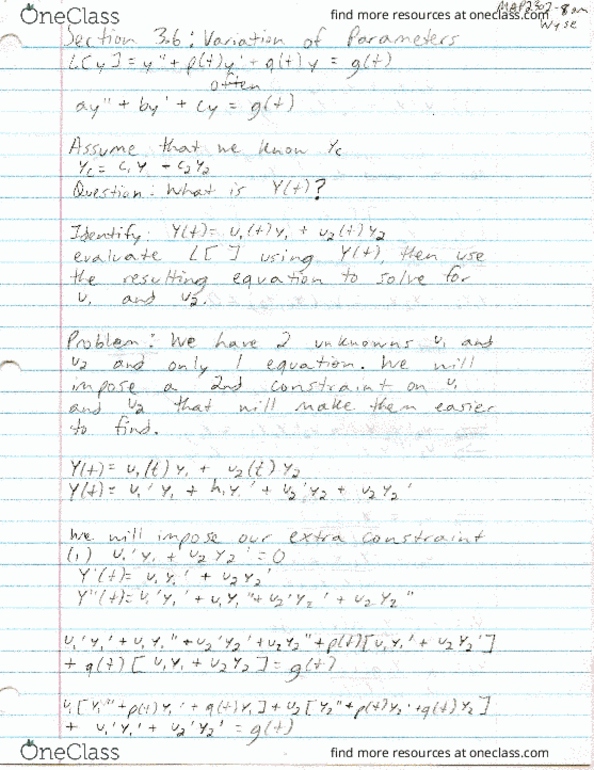 OneClass
find more resources at oneclass.com
MAP2302-8am
Wyse
Section 3.6: Variation of Parameters
L[y] = y'' + p(t)y' + q(t)y = g(t)
often
ay'' + by' + cy = g(t)
Assume that we know yc
yc = c1y1 - c2y2
Question: What is Y(t)?
Identify: Y(t) = u1(t)y1 + u2(t)y2
evaluate L[ ] using Y(t), then use
the resulting equation to solve for
u1 and u2.
Problem: We have 2 unknowns u1 and
u2 and only 1 equation. We will
impose a 2nd constraint on u1
and u2 that will make them easier
to find.
Y(t) = u1(t)y1 + u2(t)y2
Y(t) = u1'y1 + u1y1' + u2'y2 + u2y2'
We will impose our extra constraint
(1) u1'y1 + u2y2' = 0
Y'(t) = u1y1' + u2y2'
Y''(t) = u1'y1' + u1y1'' + u2'y2' + u2y2''
u1'y1' + u1y1'' + u2'y2' + u2y2'' + p(t)[u1y1' + u2y2']
+ q(t)[u1y1 + u2y2] = g(t)
u1[y1'' + p(t)y1' + q(t)y1] + u2[y2'' + p(t)y2' + q(t)y2]
+ u1'y1' + u2'y2' = g(t)
OneClass
find more resources at oneclass.com